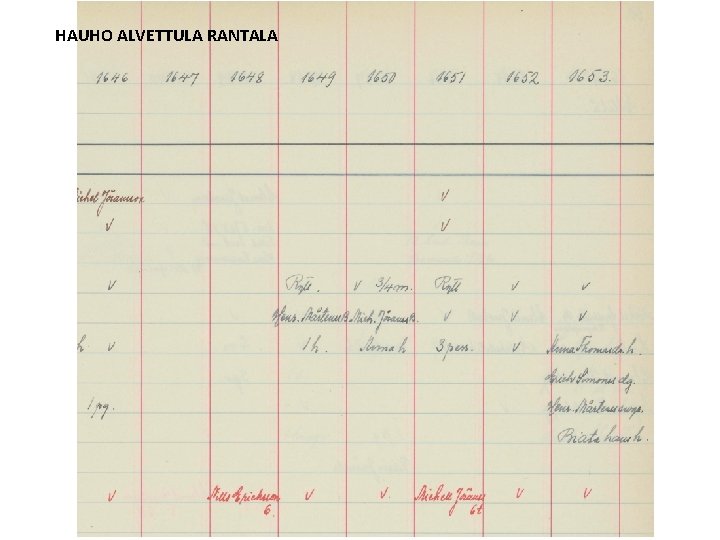 HAUHO ALVETTULA RANTALA
1646 1647 1648 1649 1650 1651 1652 1653.
Michel Jöransson v
v v
v Rytt. v 3/4 m. Rytt v v
Henr. Mårtenss Mich. Jöranss v v v
h. v 1 h. Anna h 3 pers. v Anna Thomasdr. h.
Erich Simons dg.
1 pg. Henr. Mårtens
Biata hans h.
v Nills Erichsson v v. Michell Jöranss v v
6. 6t